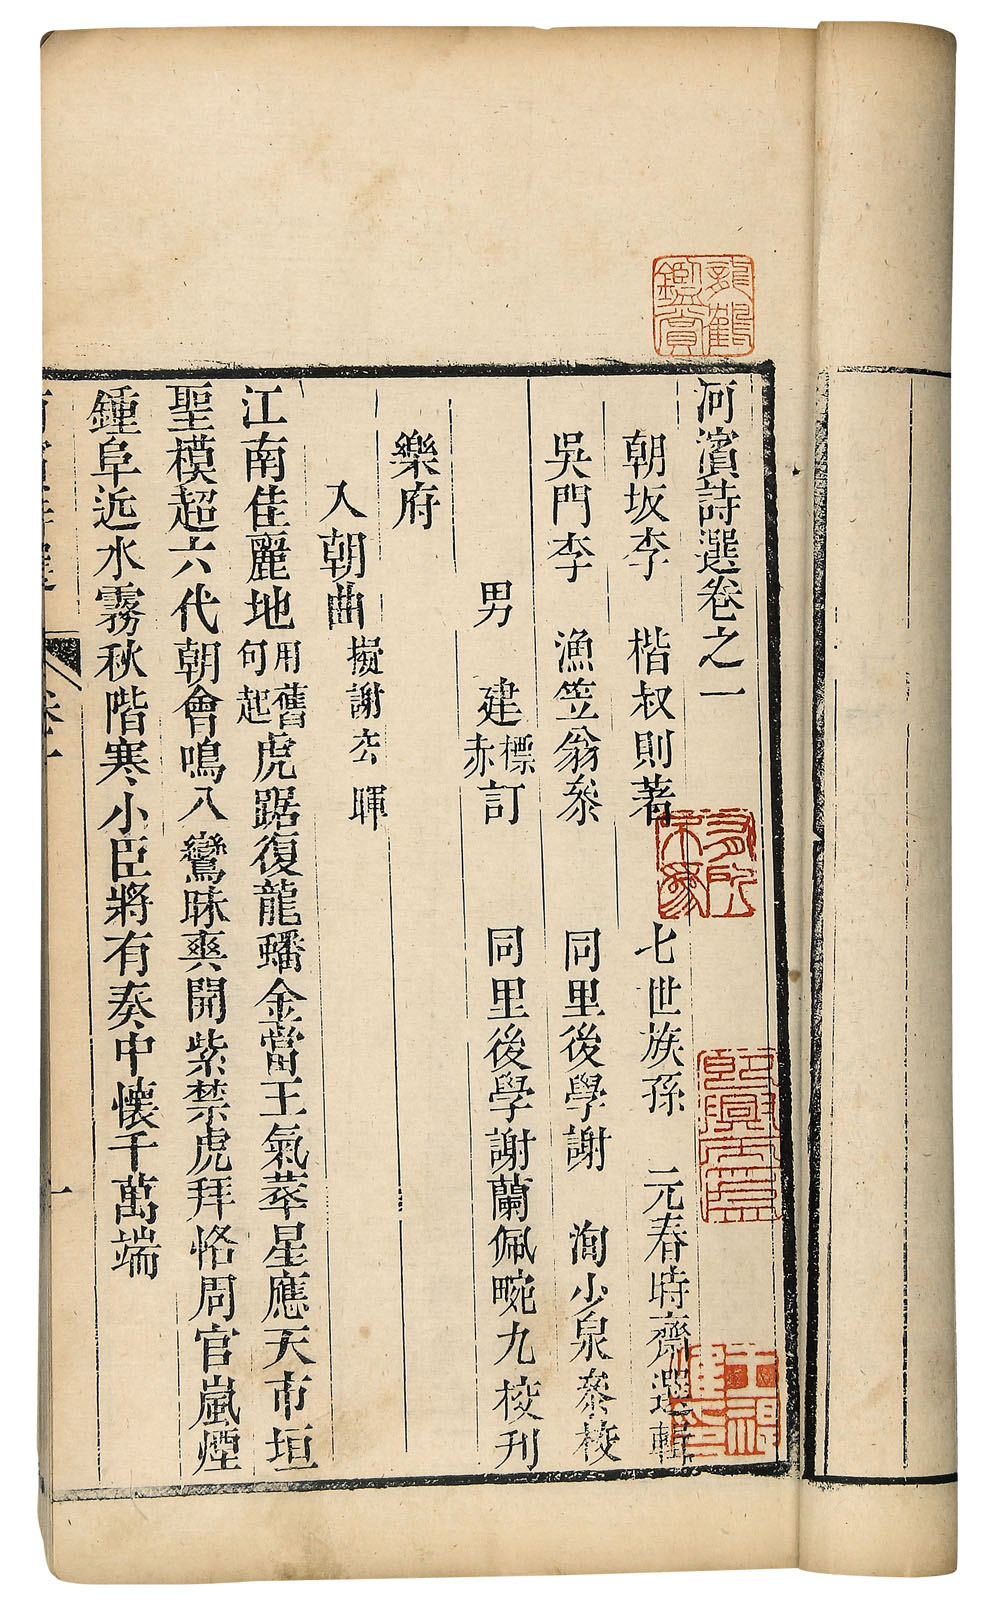 河濱詩選卷之一
朝坂李 楷叔則著 七世族孫 元春時齋選輯
吳門李 漁笠翁叅 同里後學謝 洵小泉叅校
男 建標赤訂 同里後學謝蘭佩畹九校刊
樂府
入朝曲擬謝玄暉
江南佳麗地用舊句起虎踞復龍蟠金當王氣萃星應天市垣
聖模超六代朝會鳴入鸞昧爽開紫禁虎拜恪周官嵐煙
鍾阜近水霧秋階寒小臣將有奏中懷千萬端
河濱詩選 卷一 一
龍鶴鑑賞